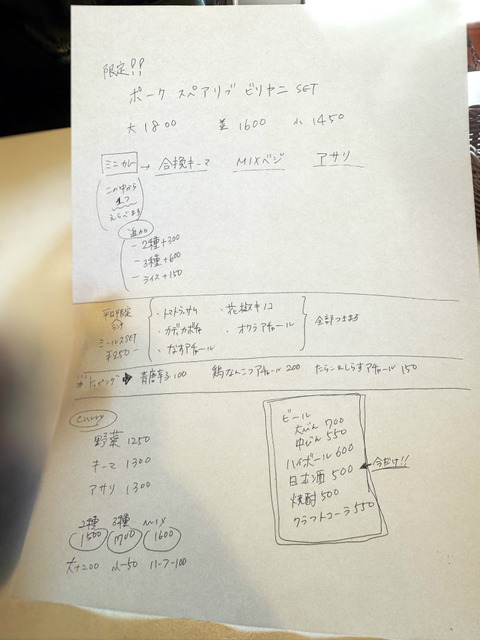 限定!!
ポーク スペアリブ ビリヤニ SET
大 1800 並 1600 小 1450
ミニカレー → 合挽キーマ MIXベジ アサリ
この中から
1つ
えらべます
追加
- 2種 +300
- 3種 +600
- ライス +150
平日限定
ミールスSET
¥250-
・トマトラッサム ・花椒キノコ
・カディカボチャ ・オクラアチャール
・なすアチャール
全部つきます
トッピング → 青唐辛子 100 鶏なんこつアチャール 200 たらこしらすアチャール 150
curry
野菜 1250
キーマ 1300
アサリ 1300
2種 3種 MIX
1500 1700 1600
大+200 小-50 ハーフ-100
ビール
大びん 700
中びん 550
ハイボール 600
日本酒 500 ← 今だけ!!
焼酎 500
クラフトコーラ 550